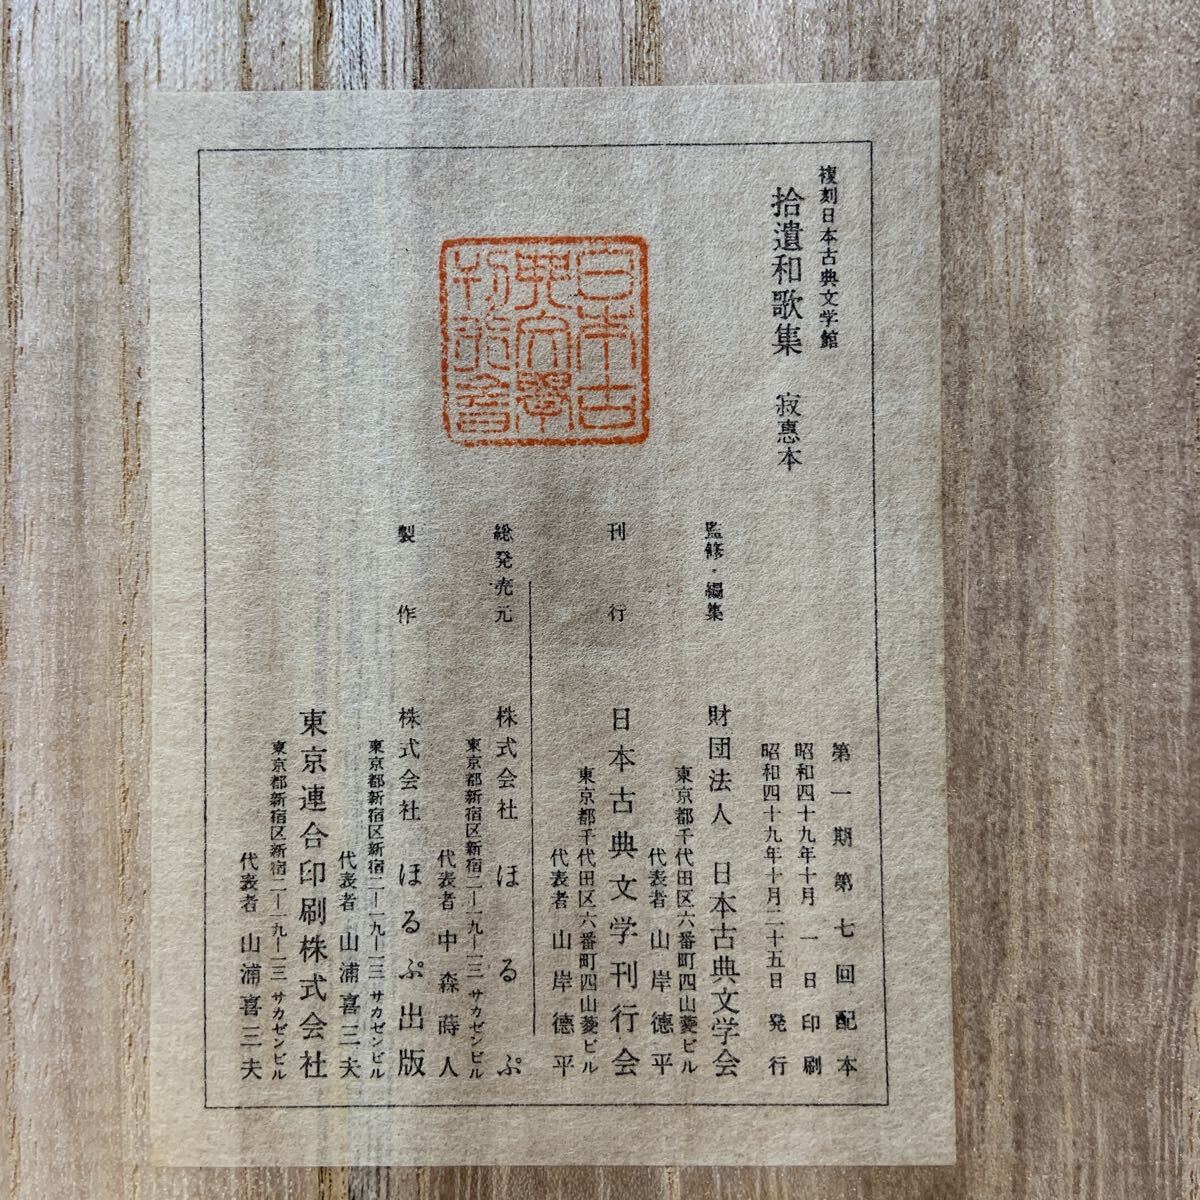 複刻日本古典文学館
拾遺和歌集 寂恵本
日本古
典文学
刊行会
第一期第七回配本
昭和四十九年十月 一日印刷
昭和四十九年十月二十五日 発行
監修・編集 財団法人 日本古典文学会
東京都千代田区六番町四山菱ビル
代表者 山岸德平
刊行 日本古典文学刊行会
東京都千代田区六番町四山菱ビル
代表者 山岸德平
総発売元 株式会社 ほるぷ
東京都新宿区新宿二ー一九ー一三 サカゼンビル
代表者 中森蒔人
製作 株式会社 ほるぷ出版
東京都新宿区新宿二ー一九ー一三 サカゼンビル
代表者 山浦喜三夫
東京連合印刷株式会社
東京都新宿区新宿二ー一九ー一三 サカゼンビル
代表者 山浦喜三夫